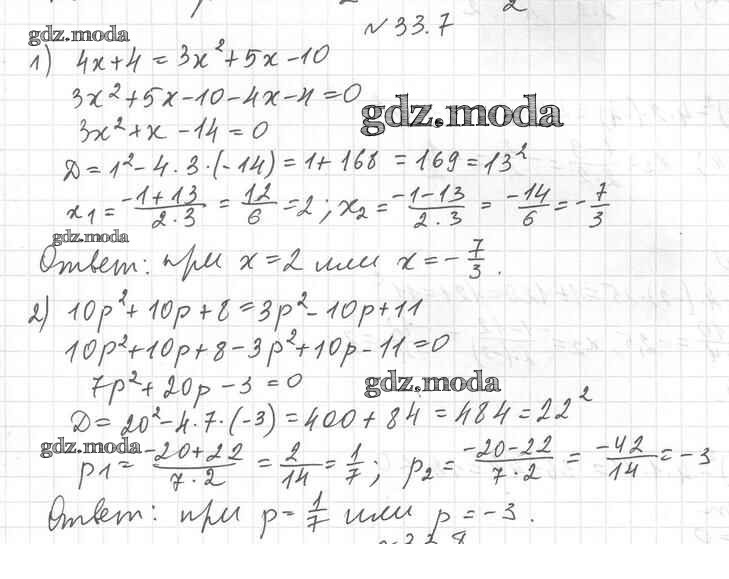 №33.7
gdz.moda
1) 4x+4=3x²+5x-10
3x²+5x-10-4x-4=0
gdz.moda
3x²+x-14=0
D=1²-4·3·(-14)=1+168=169=13²
x₁=(-1+13)/(2·3)=12/6=2; x₂=(-1-13)/(2·3)=-14/6=-7/3
gdz.moda
Ответ: при x=2 или x=-7/3.
2) 10p²+10p+8=3p²-10p+11
10p²+10p+8-3p²+10p-11=0
7p²+20p-3=0
gdz.moda
D=20²-4·7·(-3)=400+84=484=22²
gdz.moda
p₁=(-20+22)/(7·2)=2/14=1/7; p₂=(-20-22)/(7·2)=-42/14=-3
Ответ: при p=1/7 или p=-3.